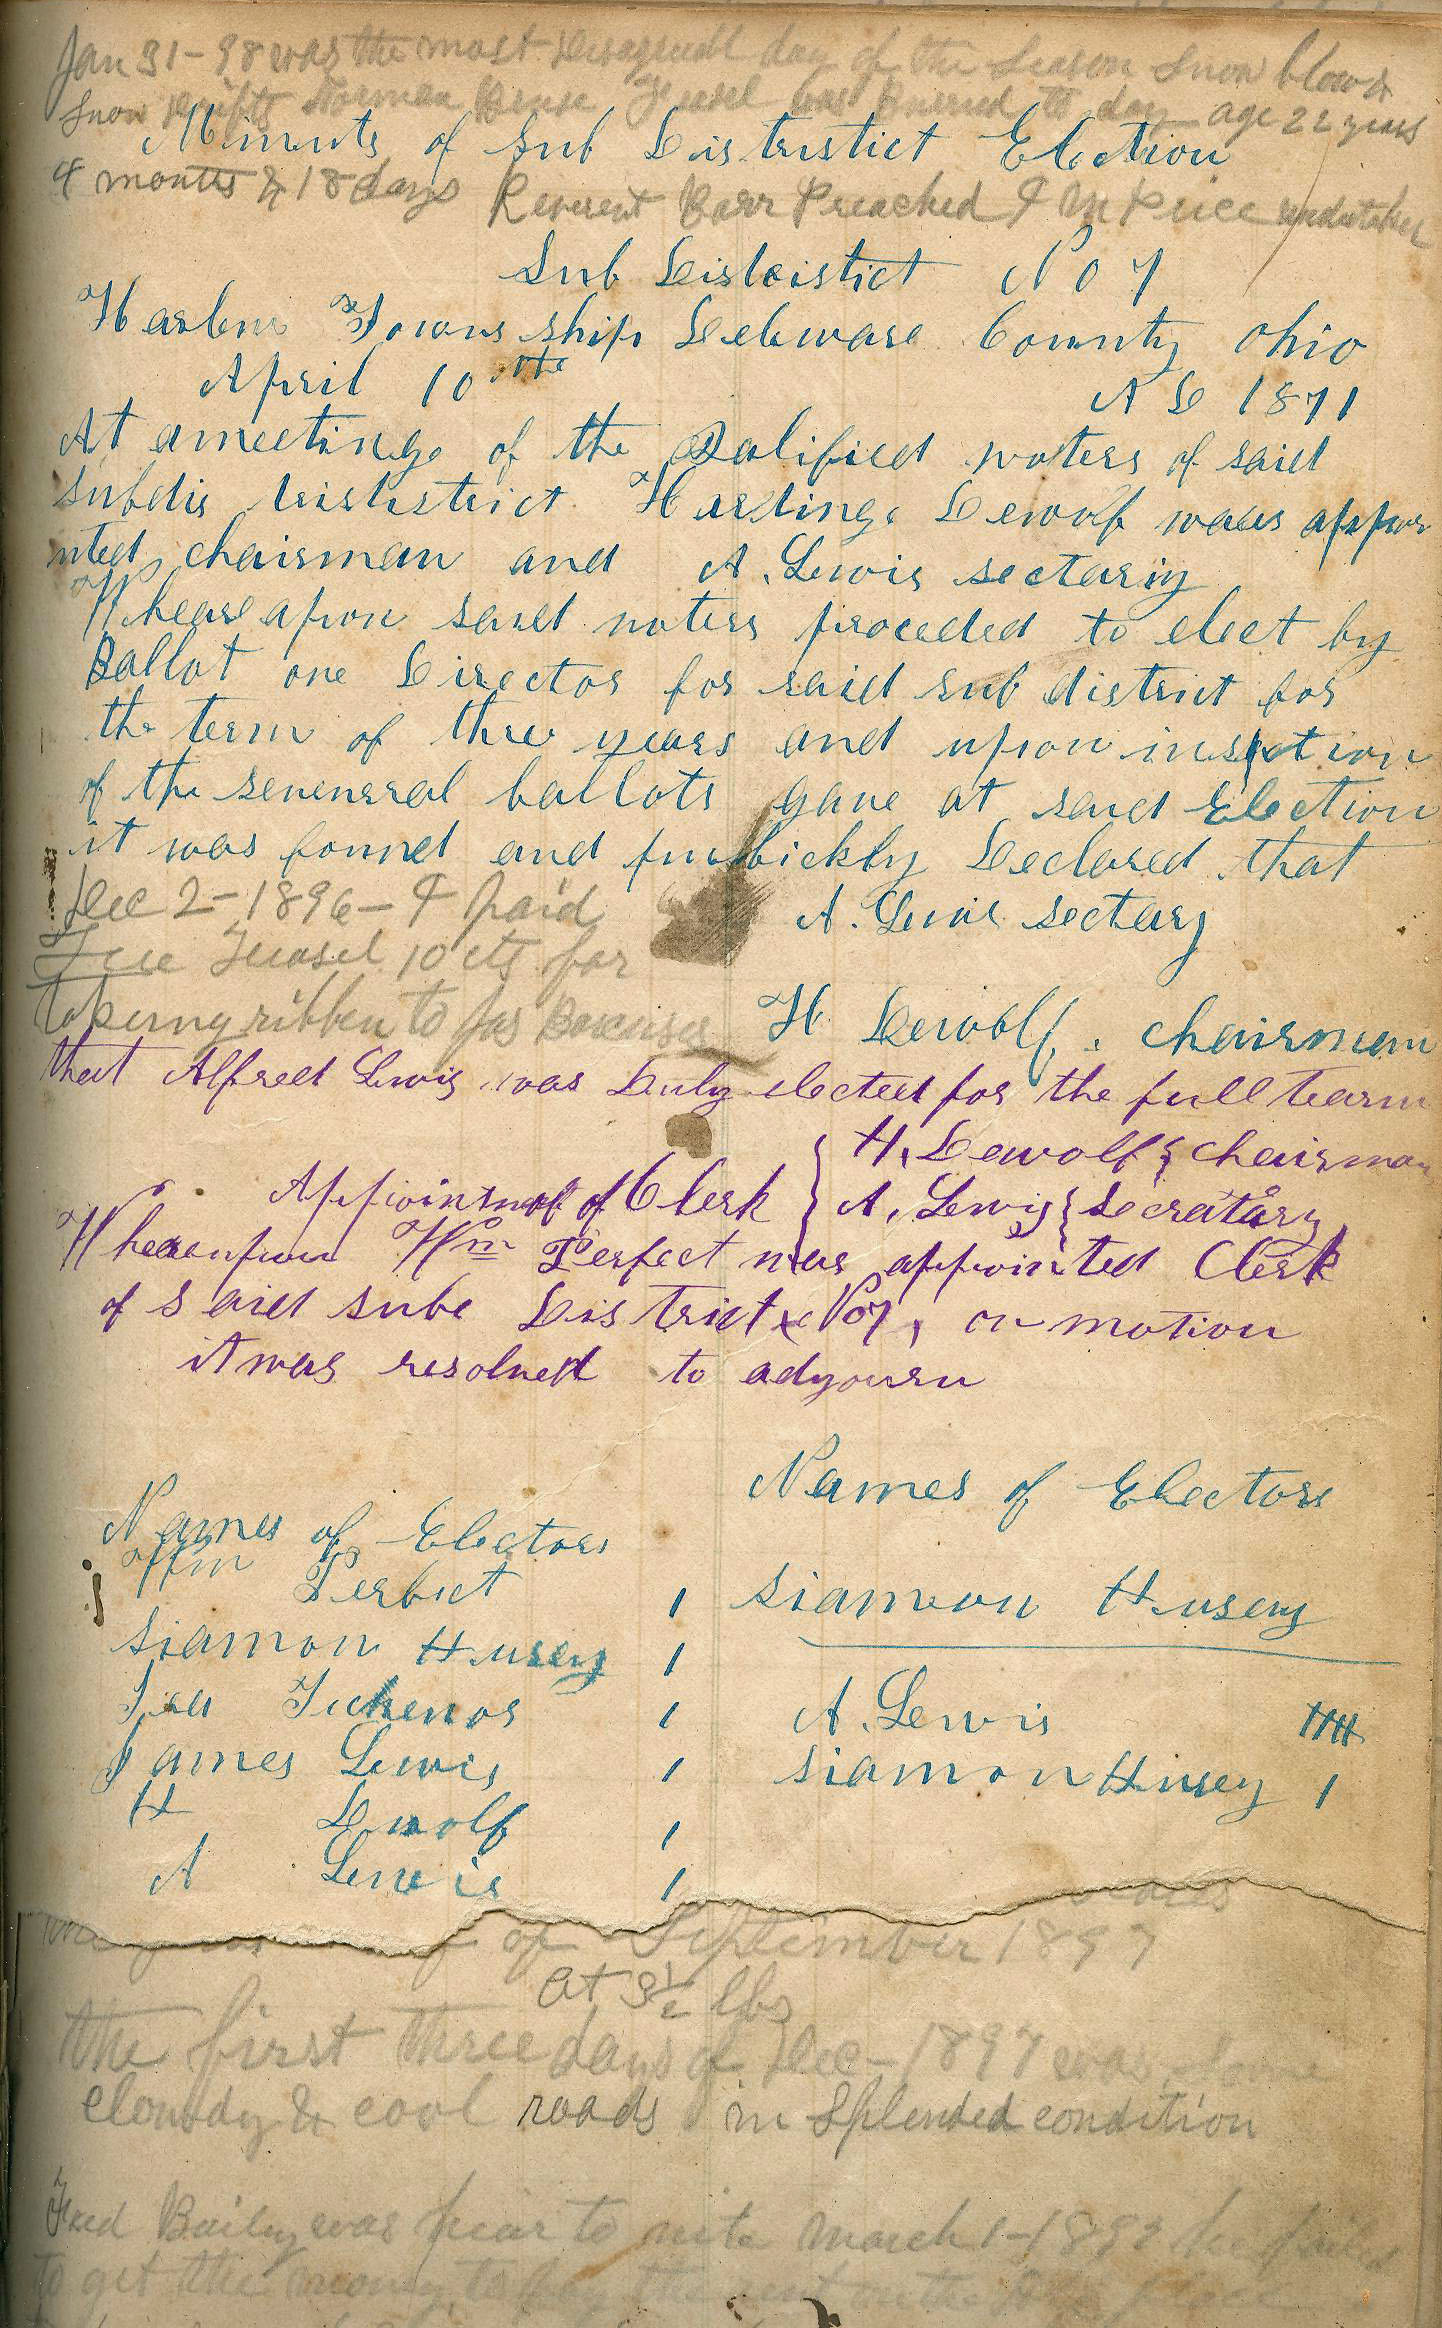 Jan 31-98 was the most day of the season snow blowd
snow drifts Norman Teusel was Buried to day age 22 years
Minuts of Sub Districtict Election
4 months & 18 days Reverent Barr Preached & undertaker
Sub Districtict No 7
Harlem Township Deleware County Ohio
April 10 the A D 1871
At ameeting of the Qalified voters of said
subdis Harding Dewolf was appoi
nted chairman and A. Lewis sectariy
Wheareapon said voters proceded to elect by
Ballot one Director for said sub district for
the term of three years and upon inspction
of the severeral ballots gave at said Election
it was found and Declared that
Dec 2-1896- I paid
A. Lewis sectary
Teusel 10 cts for
taking ribben to
H Dewolf. chairman
that Alfred Lewis was Duly elected for the full tearm
H. Dewolf chairman
Appointment of Clerk A. Lewis Secratary
Whereupon Wm Perfect was appointed Clerk
of said sube District No 7, on motion
it was resolved to adyourn
Names of Electors
Names of Electors
Wm Perfect 1
siamon Husey
siamon Husey 1
Tichenor 1
A. Lewis
James Lewis 1
siamon Husey 1
H Dewolf 1
A Lewis 1
of September 1897
at 3½ lbs
the first three days of Dec-1897 was some
cloudy & cool roads in splended condition
Fred Baily was hear to nite March 1-1898 he failed
to get the money to pay the rent on the place